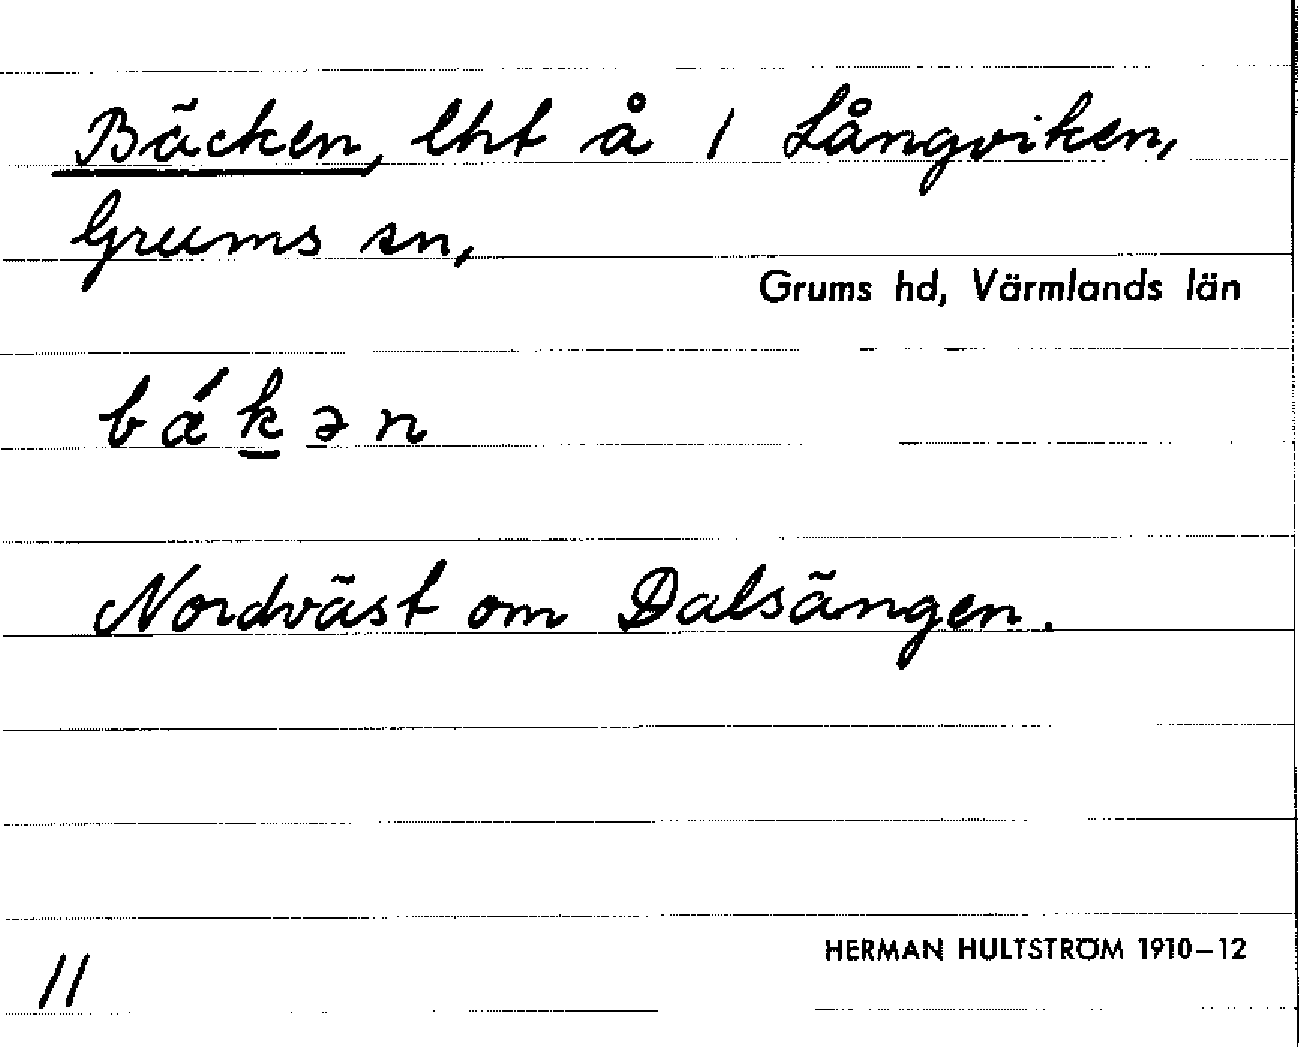 Bäcken, lht å 1 Långviken,
Grums sn,
Grums hd, Värmlands län
bá̱kən
Nordväst om Dalsängen.
HERMAN HULTSTRÖM 1910–12
11